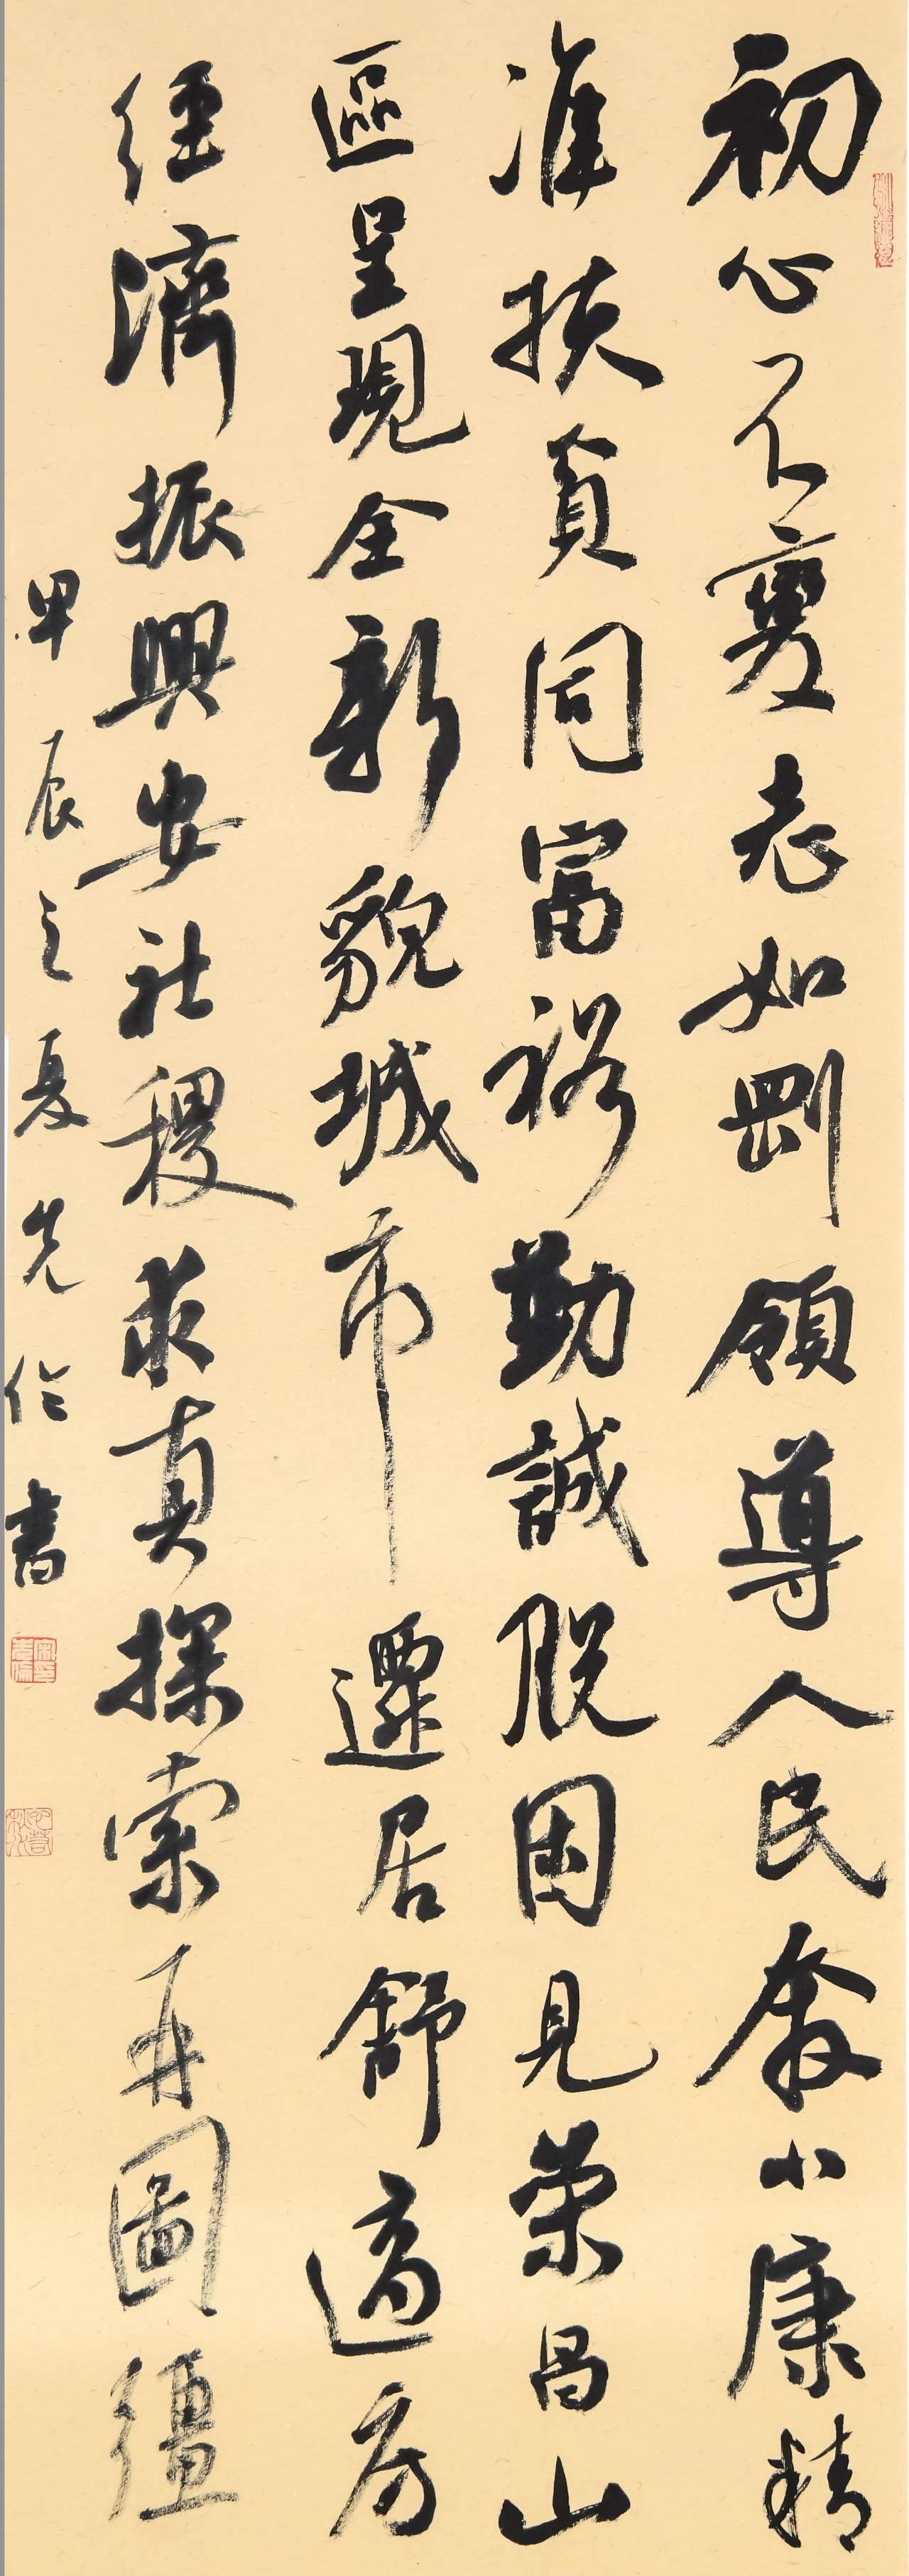 初心不變志如剛領導人民奔小康精
準扶貧同富裕勤誠脫困見榮昌山
區呈現全新貌城市遷居舒適房
經濟振興安社稷求真探索再圖疆
甲辰之夏先倫書